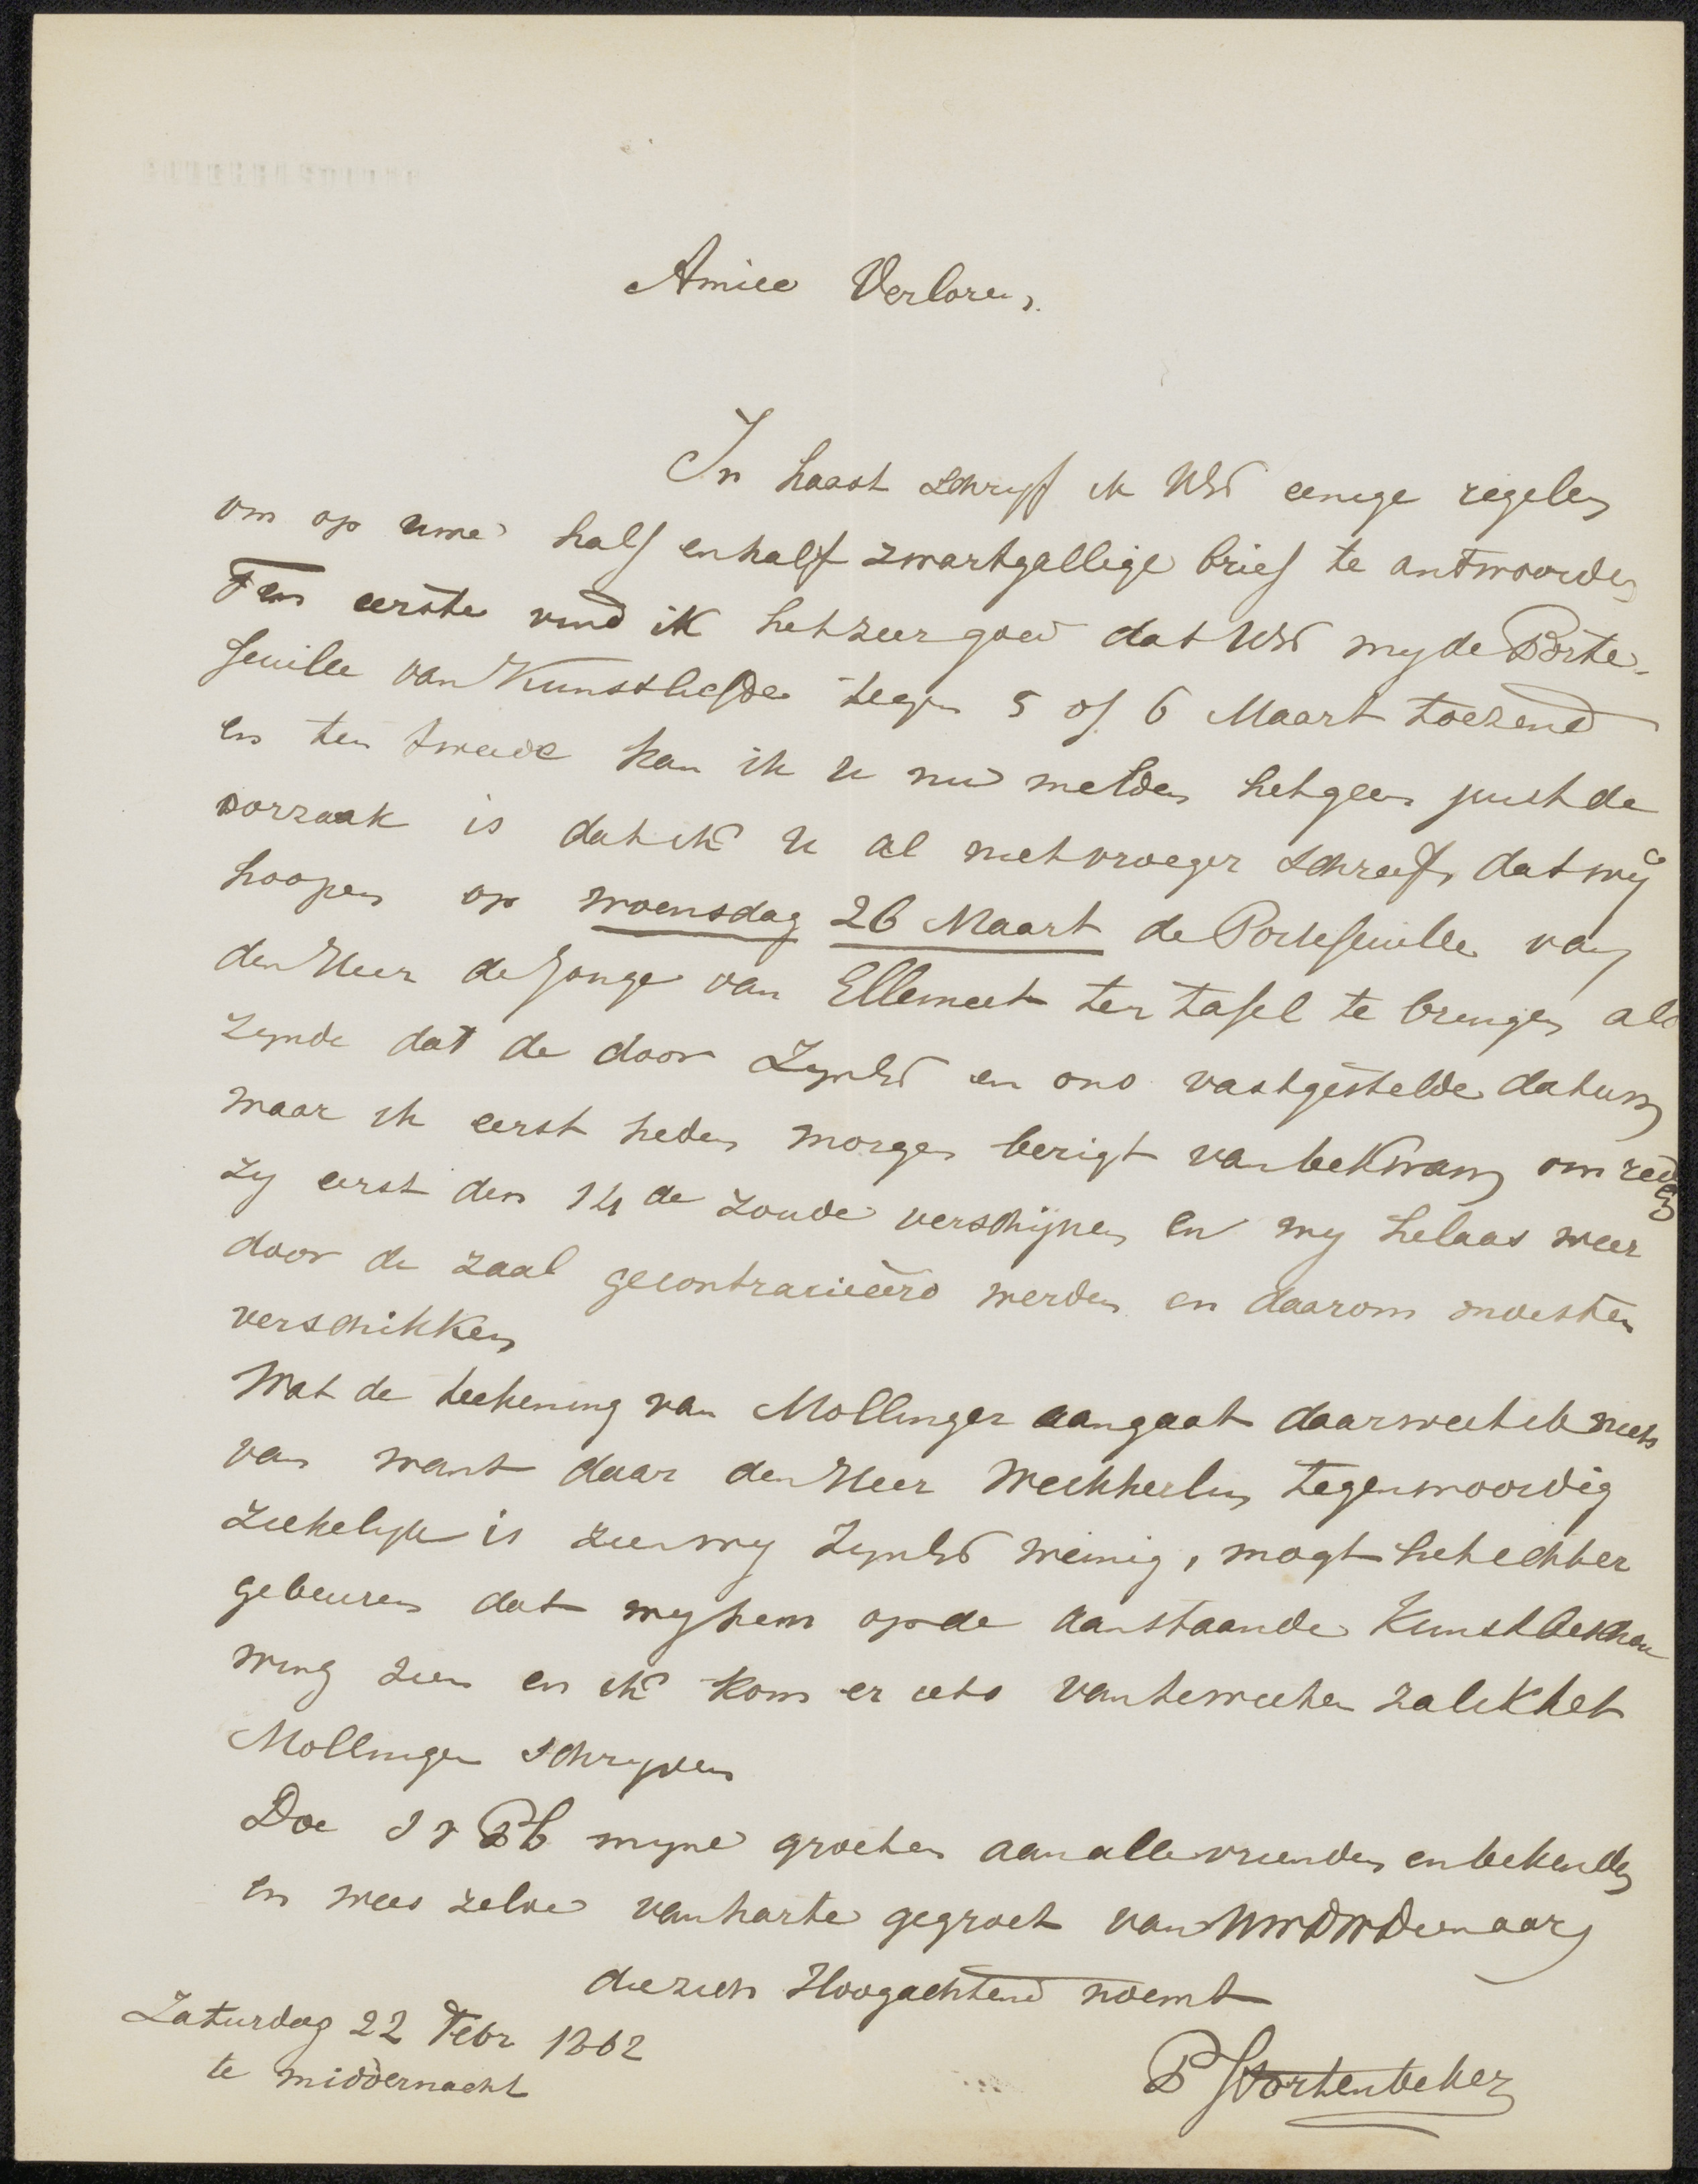 Amice Verloren,
In haast schryf ik UEd eenige regelen
om op uwe half en half zwartgallige brief te antwoorden
Ten eerste vind ik het zeer goed dat UEd my de Porte-
feuille van Kunstliefde tegen 5 of 6 Maart toezend
en ten tweede kan ik u nu melden hetgeen juist de
oorzaak is dat ik u al niet vroeger schreef, dat wij
hoopen op woensdag 26 Maart de Portefeuille van
den Heer de Jonge van Ellemeet ter tafel te brengen als
zynde dat de door ZynEd en ons vastgestelde datum
waar ik eerst heden morgen berigt van bekwam om reden
zy eerst den 14de zoude verschijnen en wy helaas weer
door de zaal gecontrarieerd werden en daarom moesten
verschikken
Wat de teekening van Mollinger aangaat daar weet ik niets
van want daar den Heer Weckherlin tegenwoordig
ziekelyk is zien wy ZynEd weinig, mogt het echter
gebeuren dat wy hem op de aanstaande Kunstbeschou
wing zien en ik kom er iets van te weeten zal ik het
Mollinger schryven
Doe myne groeten aan alle vrienden en bekenden
en wees zelve van harte gegroet van UWDWDienaar
die zich Hoogachtend noemt
P Stortenbeker
Zaturdag 22 Febr 1862
te middernacht